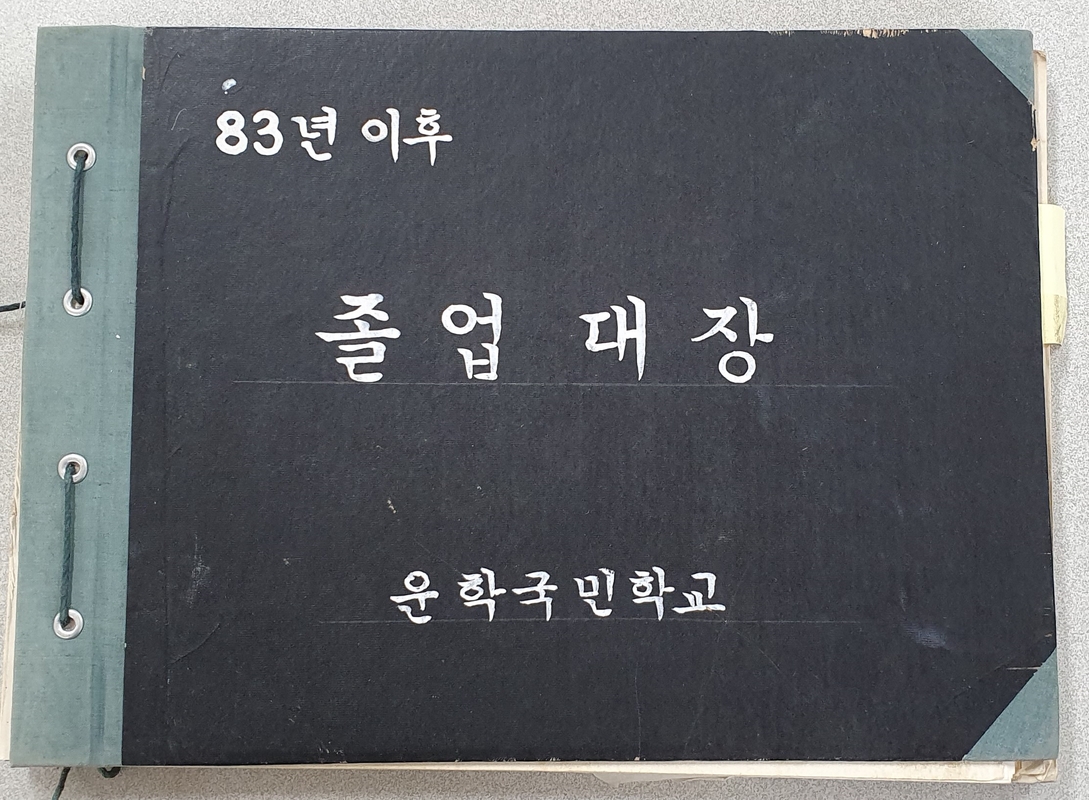 83년 이후
졸업 대장
운학국민학교